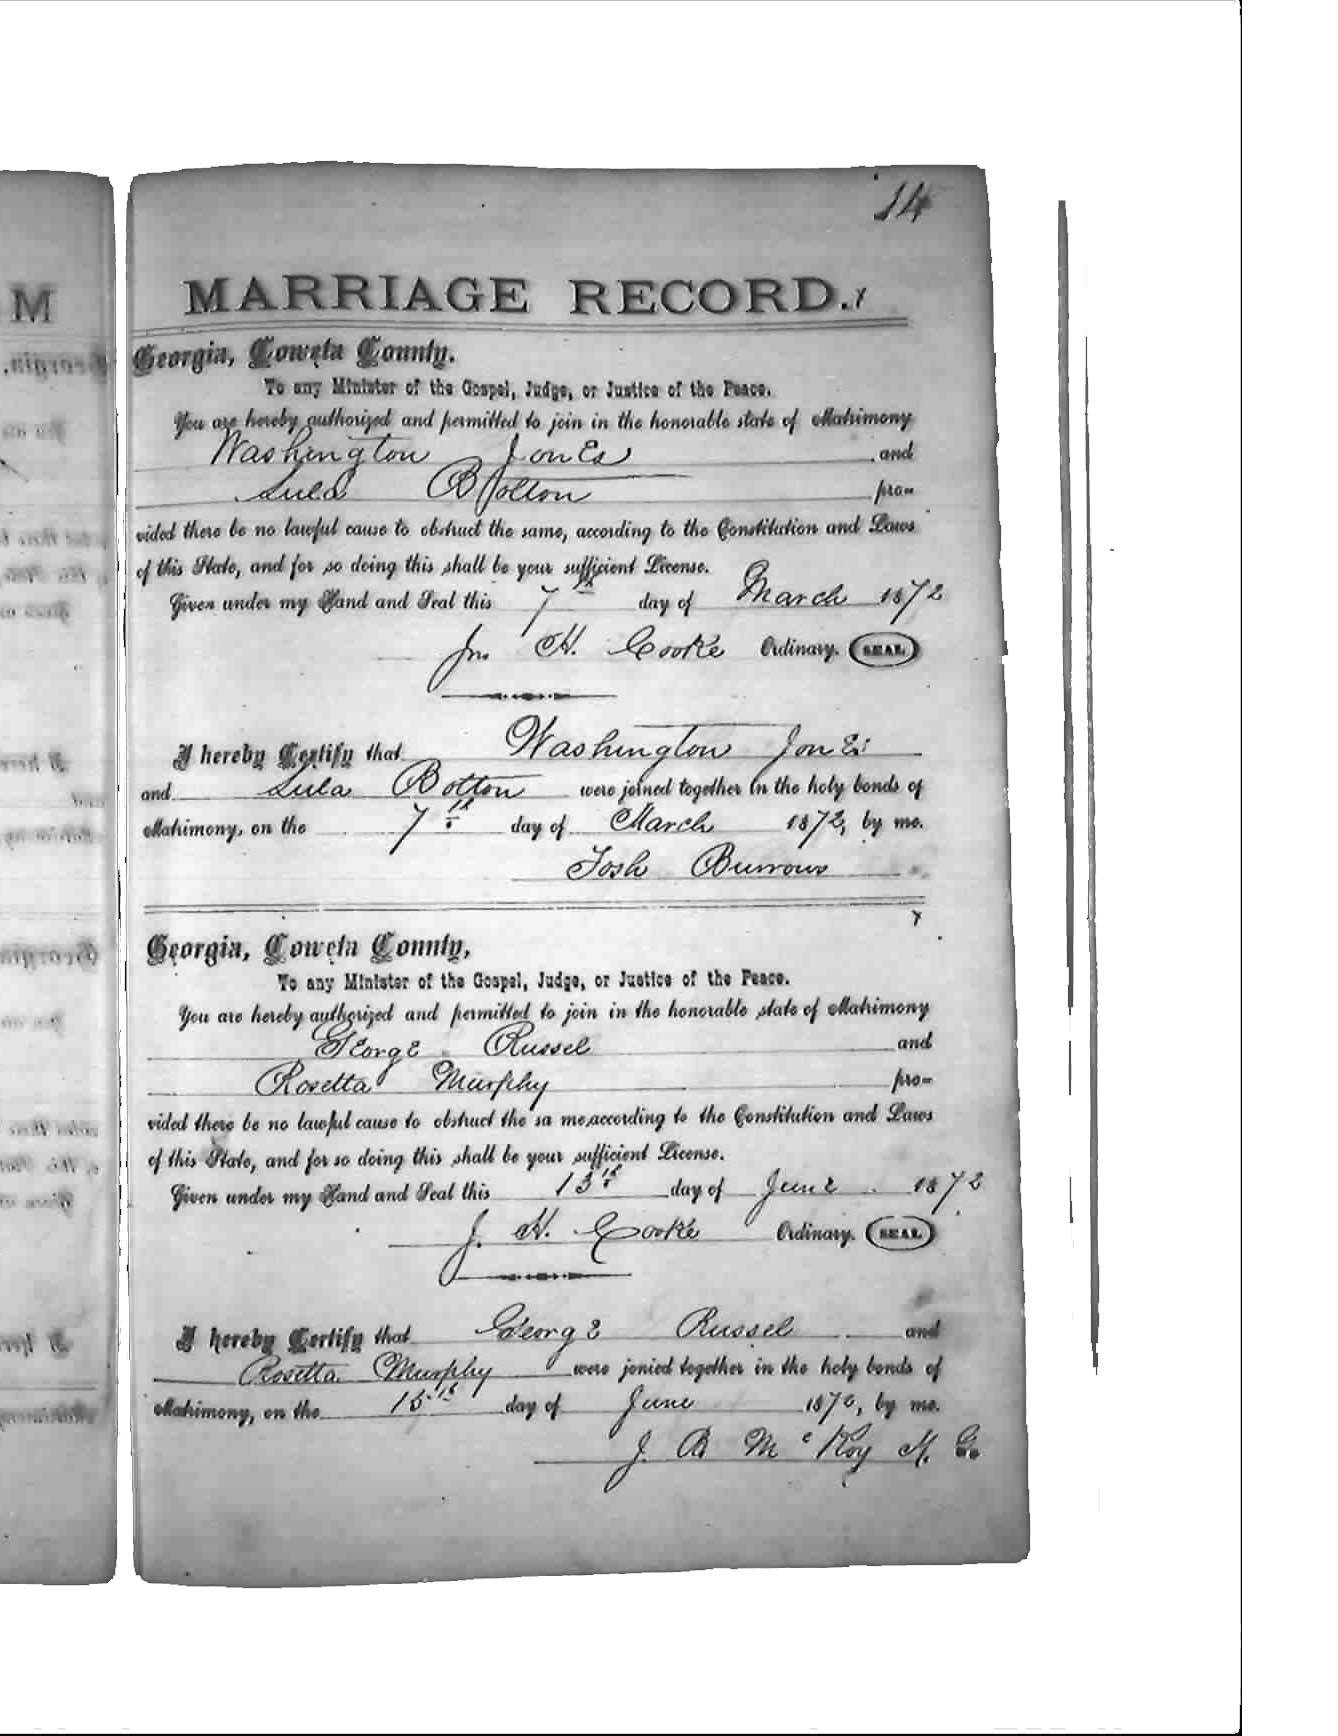 14
MARRIAGE RECORD.
Georgia, Coweta County.
To any Minister of the Gospel, Judge, or Justice of the Peace.
You are hereby authorized and permitted to join in the honorable state of Matrimony
Washington Jones and
Lula Bolton pro-
vided there be no lawful cause to obstruct the same, according to the Constitution and Laws
of this State, and for so doing this shall be your sufficient License.
Given under my Hand and Seal this 7th day of March 1872
Jno H. Cooke Ordinary. SEAL
I hereby Certify that Washington Jones
and Lula Bolton were joined together in the holy bonds of
Matrimony, on the 7th day of March 1872, by me.
Josh Burrows
Georgia, Coweta County,
To any Minister of the Gospel, Judge, or Justice of the Peace.
You are hereby authorized and permitted to join in the honorable state of Matrimony
George Russel and
Rosetta Murphy pro-
vided there be no lawful cause to obstruct the sa me, according to the Constitution and Laws
of this State, and for so doing this shall be your sufficient License.
Given under my Hand and Seal this 13th day of June 1872
J. H. Cooke Ordinary. SEAL
I hereby Certify that George Russel and
Rosetta Murphy were jonied together in the holy bonds of
Matrimony, on the 15th day of June 1872, by me.
J. B. McKoy M. G.